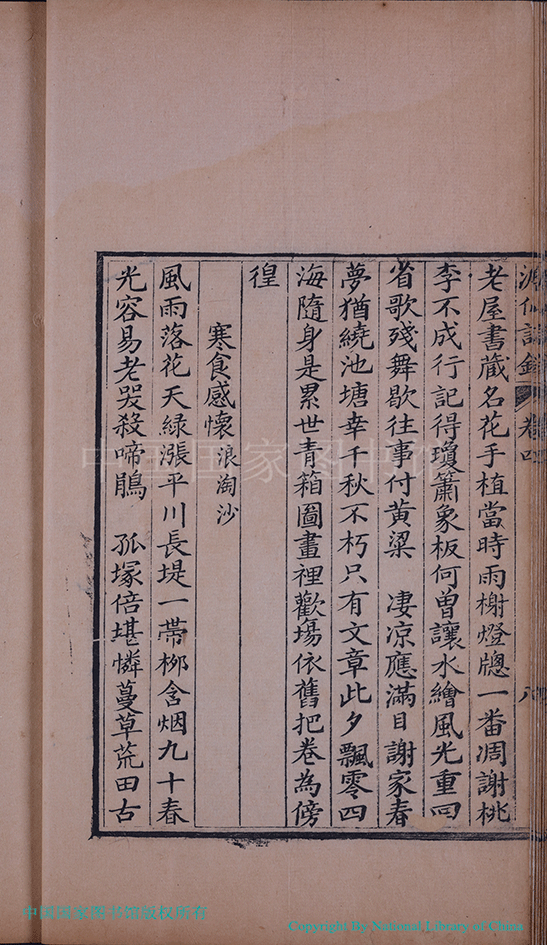 卷四
老屋書藏名花手植當時雨榭燈牕一番凋謝桃
李不成行記得瓊簫象板何曾讓水繪風光重回
省歌殘舞歇往事付黃粱　凄凉應滿目謝家春
夢猶繞池塘幸千秋不朽只有文章此夕飄零四
海隨身是累世青箱圖畫裡歡塲依舊把卷為傍
徨
寒食感懷浪淘沙
風雨落花天綠漲平川長堤一帶栁含烟九十春
光容易老哭殺啼鵑　孤塚倍堪憐蔓草荒田古
中国国家图书馆
中国国家图书馆版权所有
Copyright By National Library of China